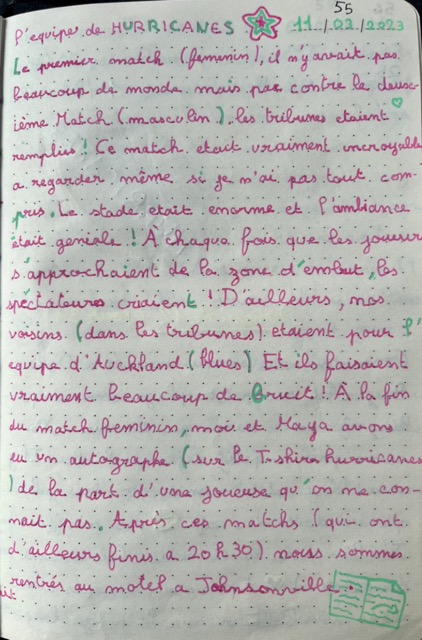 55
l'equipe de HURRICANES 11/02/2023
Le premier match (feminin), il n'y avait pas
beaucoup de monde mais par contre le deux-
ième Match (masculin), les tribunes etaient
remplies! Ce match etait vraiment incroyable
a regarder même si je n'ai pas tout com-
pris. Le stade etait enorme et l'ambiance
était geniale! A chaque fois que les joueurs
s'approchaient de la zone d'embut, les
spéctateurs criaient! D'ailleurs, nos
voisins (dans les tribunes) etaient pour l'
equipe d'Auckland (blues) Et ils faisaient
vraiment beaucoup de Bruit! À la fin
du match feminin, moi et Maya avons
eu un autographe (sur le T.shirt hurricanes
) de la part d'une joueuse qu'on ne con-
nait pas. Après ces matchs (qui ont
d'ailleurs finis a 20h30) nous sommes
rentrés au motel a Johnsonville.